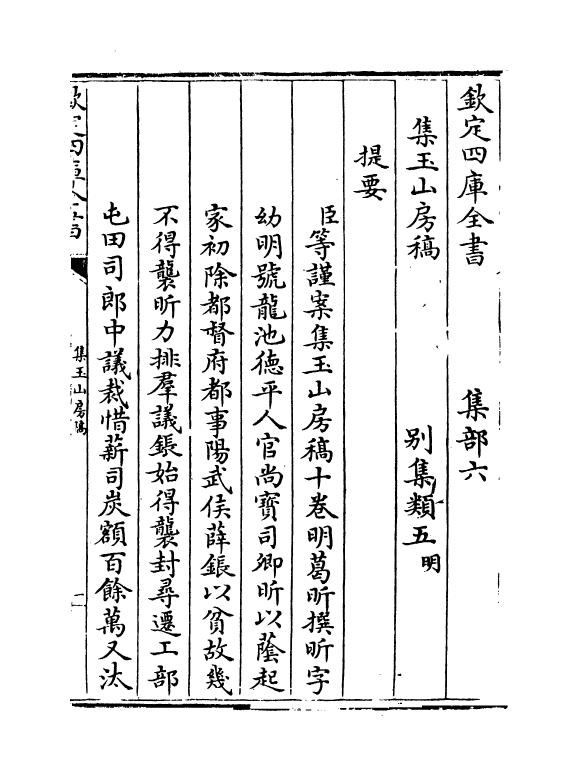 欽定四庫全書　集部六
集玉山房稿　別集類五明
提要
臣等謹案集玉山房稿十卷明葛昕撰昕字
幼明號龍池德平人官尚寳司卿昕以蔭起
家初除都督府都事陽武侯薛鋹以貧故幾
不得襲昕力排羣議鋹始得襲封尋遷工部
屯田司郎中議裁惜薪司炭額百餘萬又汰
欽定四庫全書
集玉山房稿